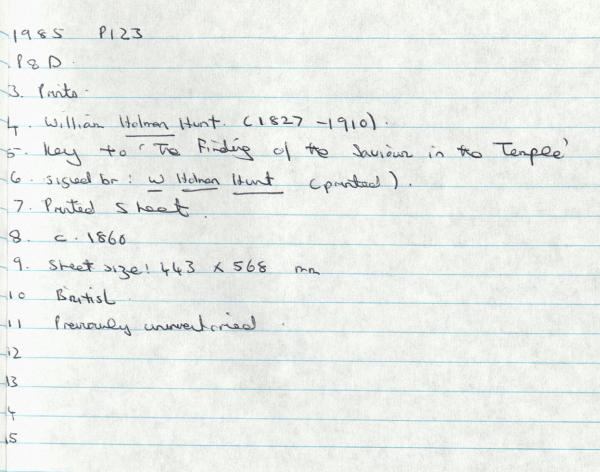 1985 P123
P&D.
3. Prints.
4. William Holman Hunt. (1827 - 1910).
5. Key to 'The Finding of the Saviour in the Temple'
6. signed br: W Holman Hunt (printed).
7. Printed Sheet.
8. c. 1860
9. Sheet size: 443 x 568 mm
10 British.
11 Previously uninventoried.
12
13
4
15